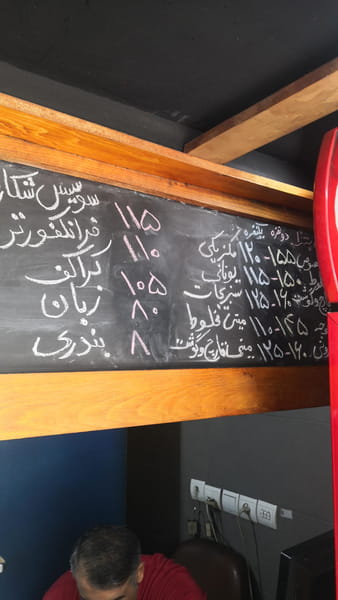 یکنفره دونفره
مکزیکی ۱۲۰-۱۵۵
یونانی ۱۱۵-۱۵۰
سبزیجات ۱۲۵-۱۶۰
مینی مخلوط ۱۱۰-۱۴۵
مینی قارچ و گوشت ۱۲۵-۱۶۰
سوسیس ۱۱۵
فرانکفورتر ۱۱۰
کراکف ۱۰۵
زبان ۸۰
بندری ۸۰